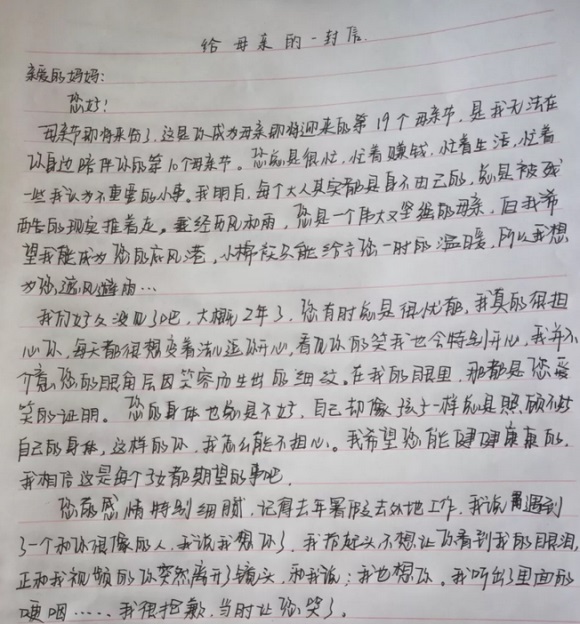 给母亲的一封信.
亲爱的妈妈:
您好!
母亲节即将来临了,这是你成为母亲即将迎来的第19个母亲节,是我无法在
你身边陪伴你的第10个母亲节。您总是很忙,忙着赚钱,忙着生活,忙着
一些我认为不重要的小事。我明白,每个大人其实都是身不由己的,总是被残
酷的现实推着走。经历风和雨,您是一个伟大又坚强的母亲,但我希
望我能成为您的庇风港,小棉袄只能给予您一时的温暖,所以我想
为您遮风避雨…
我们好久没见了吧,大概2年了,您有时总是很忧郁,我真的很担
心你,每天都很想变着法儿逗你开心,看见你的笑我也会特别开心,我并不
介意您的眼角层因笑容而生出的细纹。在我的眼里,那都是您爱
笑的证明。您的身体也总是不好,自己却像孩子一样总是照顾不好
自己的身体,这样的你,我怎么能不担心。我希望您能健健康康的,
我相信这是每个子女都期望的事吧.
您的感情特别细腻,记得去年暑假去外地工作,我说遇到
了一个和你很像的人,我说我想你了,我抬起头不想让你看到我的眼泪,
正和我视频的你突然离开了镜头,和我说:我也想你。我听出了里面的
哽咽……我很抱歉,当时让您哭了。